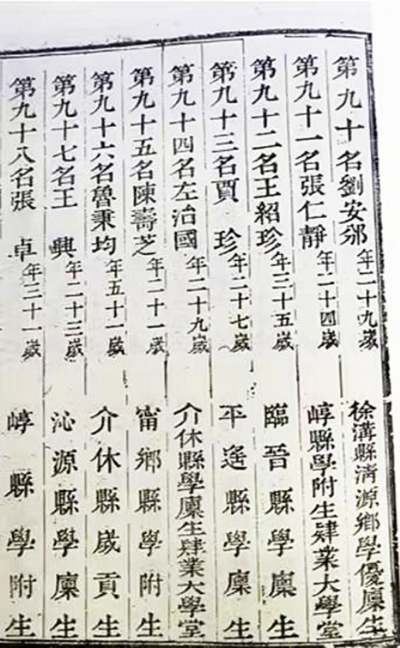 第九十名劉安邠 年二十九歲 徐溝縣清源鄉學優廩生
第九十一名張仁靜 年二十四歲 崞縣學附生肄業大學堂
第九十二名王紹珍 年三十五歲 臨晉縣學廩生
第九十三名賈珍 年二十七歲 平遙縣學廩生
第九十四名左治國 年二十九歲 介休縣學廩生肄業大學堂
第九十五名陳壽芝 年二十一歲 甯鄉縣學附生
第九十六名魯秉均 年五十一歲 介休縣歲貢生
第九十七名王興 年二十三歲 沁源縣學廩生
第九十八名張卓 年三十一歲 崞縣學附生